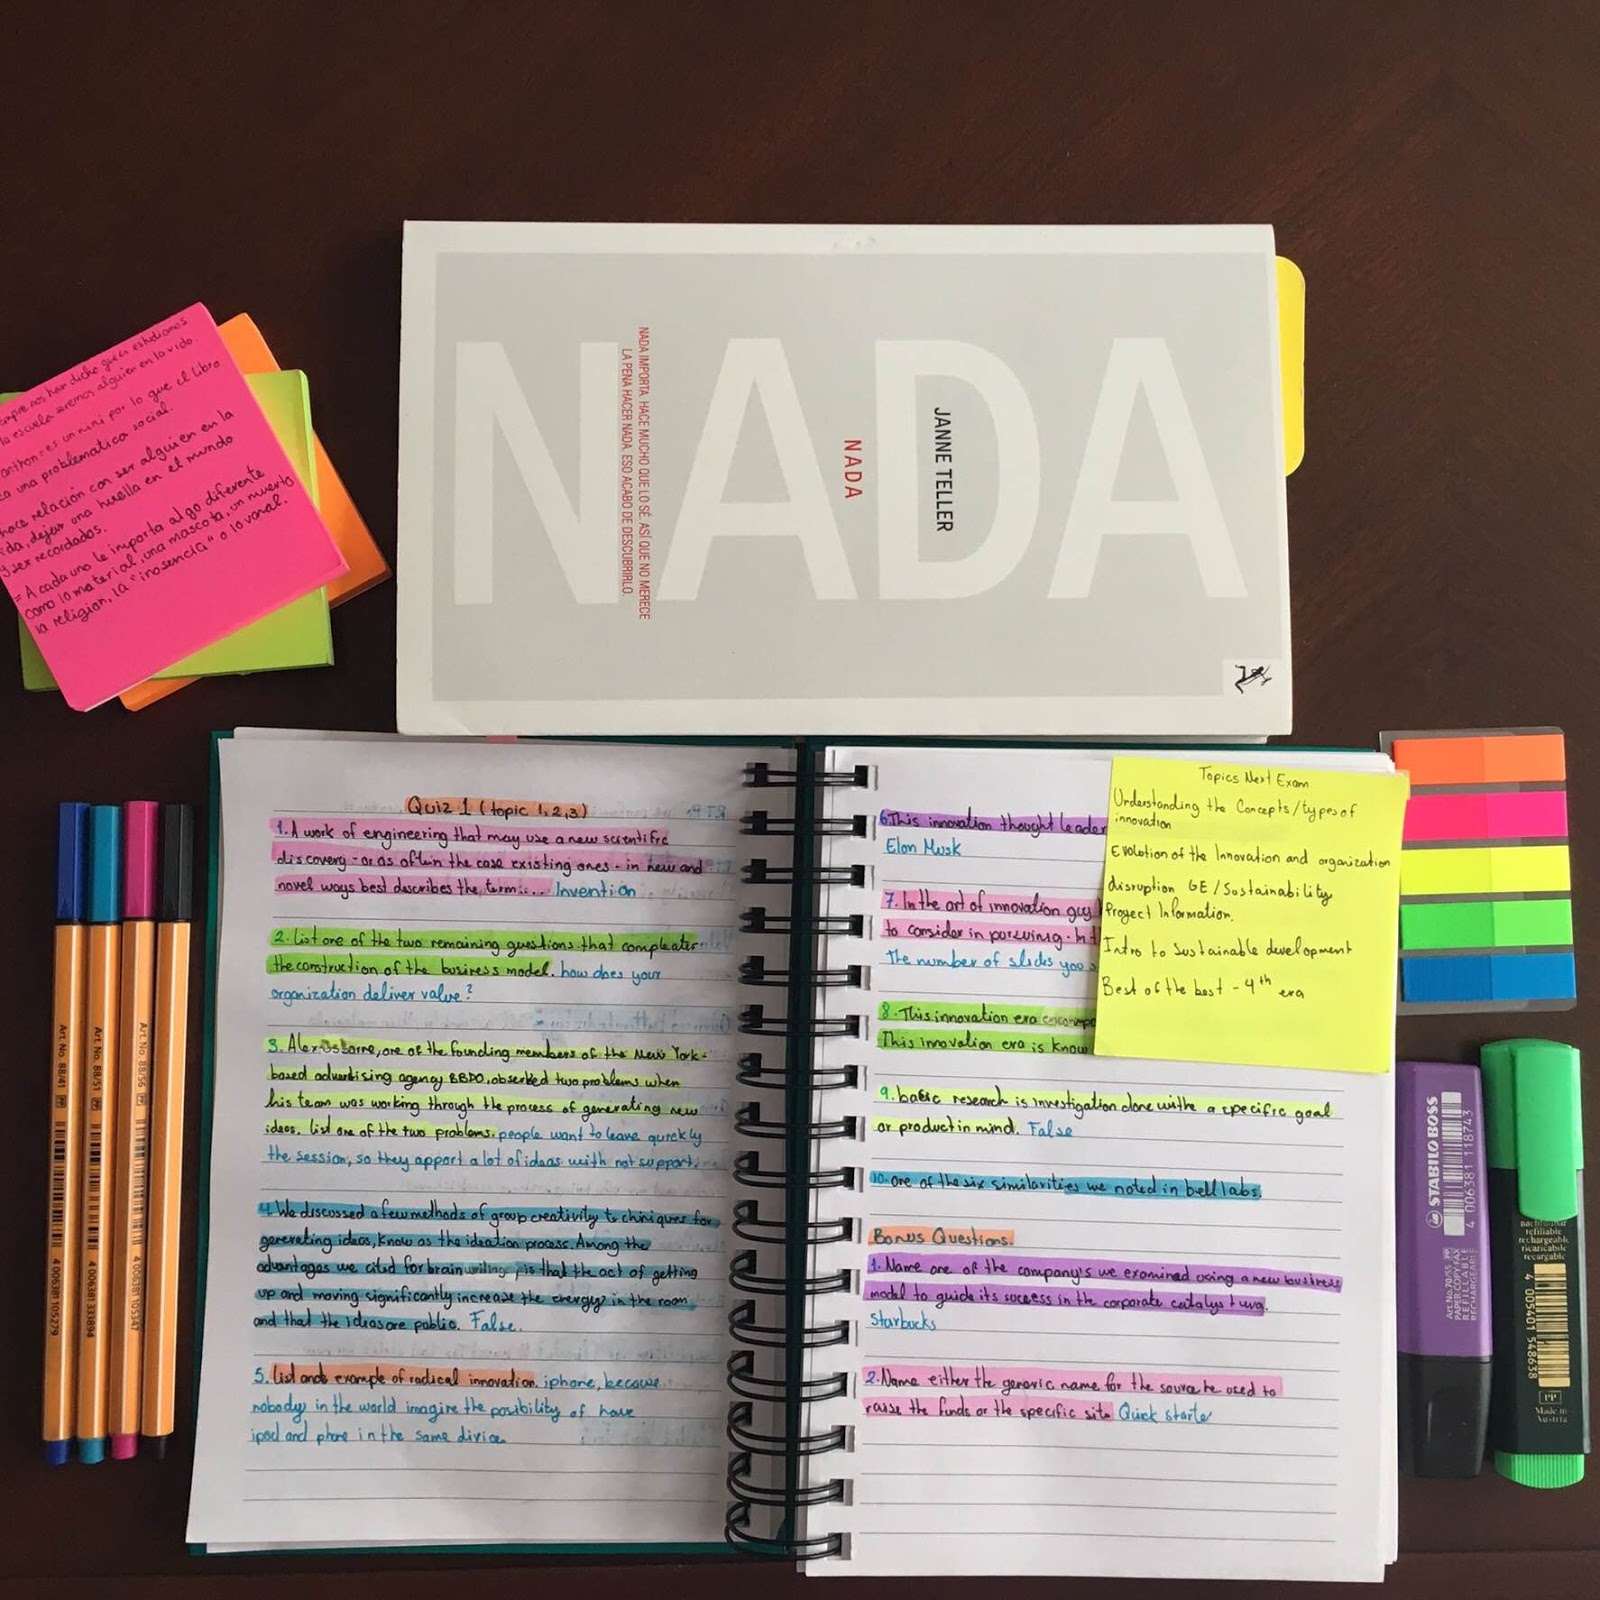 NADA
JANNE TELLER
NADA
NADA IMPORTA. HACE MUCHO QUE LO SÉ. ASÍ QUE NO MERECE
LA PENA HACER NADA. ESO ACABO DE DESCUBRIRLO.
nos han dicho que si estudiamos
la escuela seremos alguien en la vida.
anthon = es un nini por lo que el libro
una problematica social.
hace relación con ser alguien en la
vida, dejar una huella en el mundo
y ser recordados.
= A cada uno le importa algo diferente
como lo material, una mascota, un muerto
la religion, la "inosencia" o lo vanal.
Quiz 1 (topic 1,2,3)
1. A work of engineering that may use a new scientific
discovery - or as often the case existing ones - in new and
novel ways best describes the term:... Invention
2. List one of the two remaining questions that compleater
the construction of the business model. how does your
organization deliver value?
3. Alex Osborne, one of the founding members of the New York-
based advertising agency BBDO, observed two problems when
his team was working through the process of generating new
ideas. List one of the two problems. people want to leave quickly
the session, so they apport a lot of ideas with not support.
4. We discussed a few methods of group creativity techniques for
generating ideas, know as the ideation process. Among the
advantages we cited for brainwriting, is that the act of getting
up and moving significantly increase the energy in the room
and that the ideas are public. False.
5. List and example of radical innovation. iphone, because
nobody in the world imagine the posibility of have
ipod and phone in the same divice
6. This innovation thought leader
Elon Musk
7. In the art of innovation guy
to consider in
The number of slides you
8. This innovation era
This innovation era is know
9. basic research is investigation done withe a specific goal
or product in mind. False
10. One of the six similarities we noted in bell labs.
Bonus Questions.
1. Name one of the company's we examined using a new business
model to guide its success in the corporate catalyst
Starbucks
2. Name either the generic name for the source he used to
raise the funds or the specific site Quick starter
Topics Next Exam
Understanding the Concepts/types of
innovation
Evolution of the Innovation and organization
disruption GE/Sustainability
Project Information.
Intro to Sustainable development
Best of the best - 4th era
Art. No. 88/41
4 006381 105279
Art. No. 88/51
4 006381 333894
Art. No. 88/56
4 006381 105347
STABILO BOSS
4 006381 118743
Art.No. 70/55
PAPER·COPY·FAX
REFILLABLE
RECHARGEABLE
nachfüllbar
refillable
rechargeable
ricaricabile
recargable
4 005401 548638
Made in
Austria